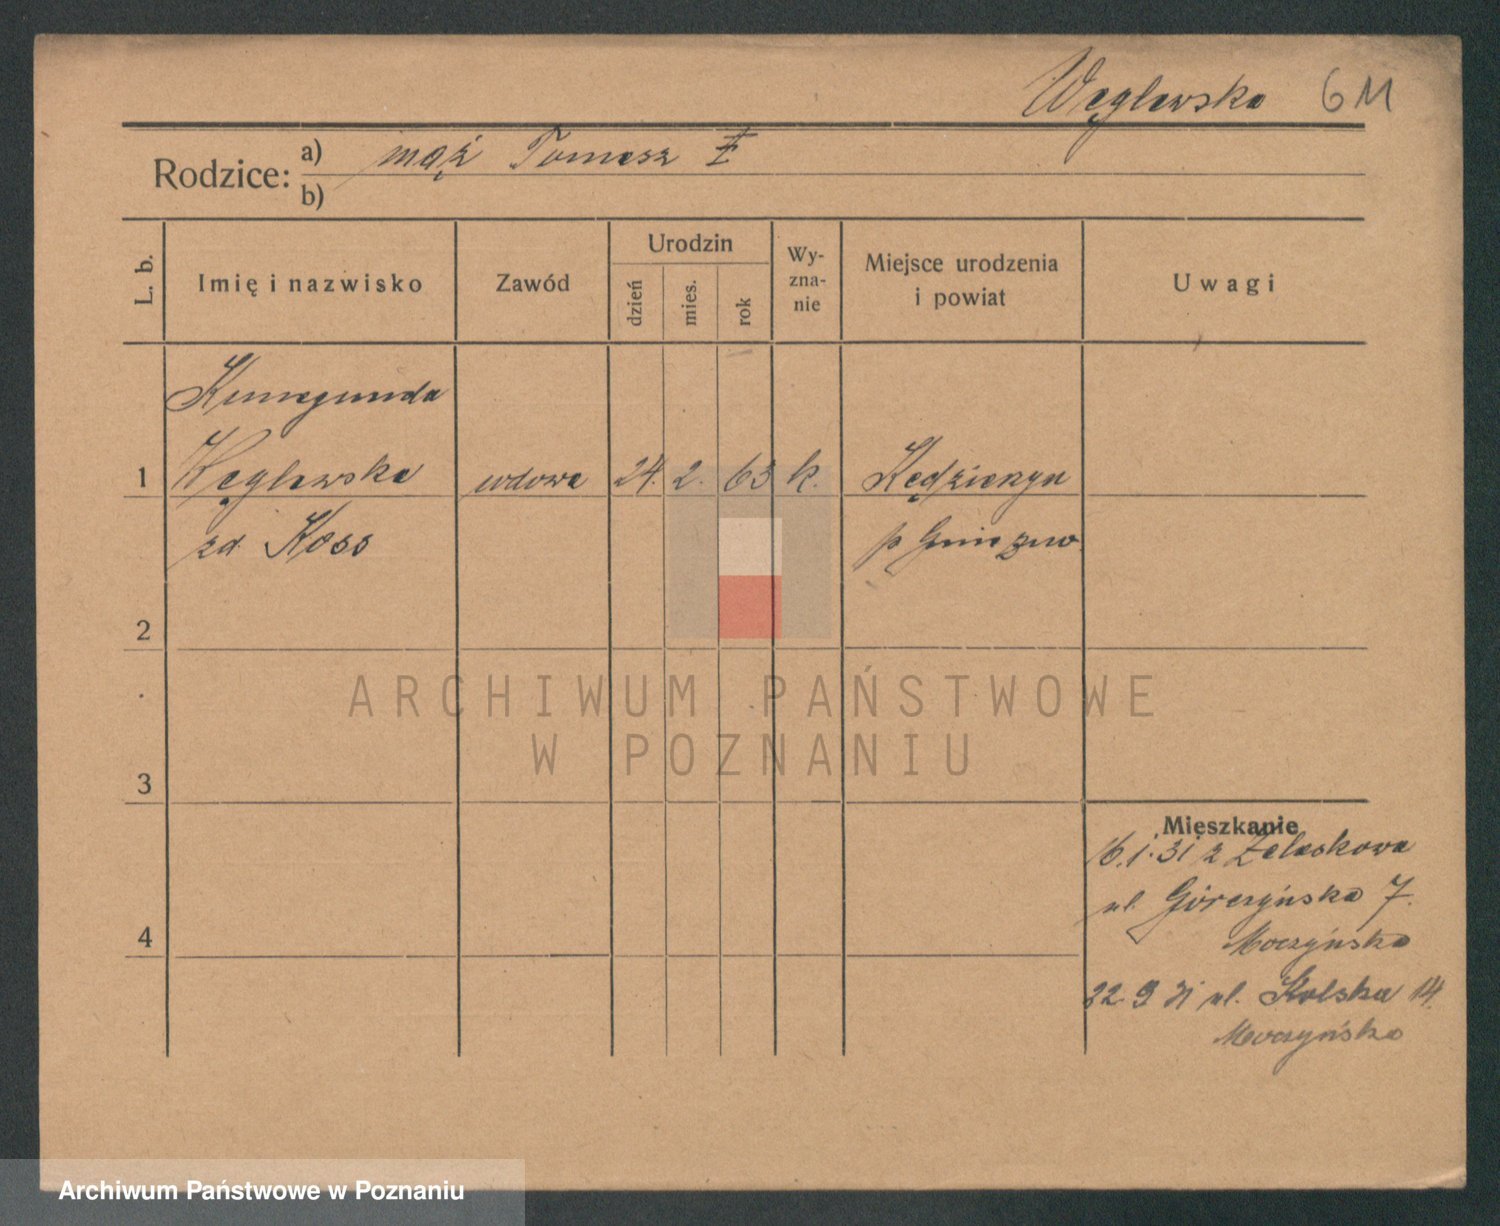 Węglewska 6M
Rodzice: a) mąż Tomasz
b)
L. b.
Imię i nazwisko
Zawód
Urodzin
dzień
mies.
rok
Wy-
zna-
nie
Miejsce urodzenia
i powiat
Uwagi
Kunegunda
1 Węglewska wdowa 24. 2. 63 k. Kędzierzyn
zd. Koss p Gniezno
2
3
4
Mieszkanie
16.1.31 z Żelaskowa
ul. Górczyńska 7.
Moczyńska
22 9 31 ul. Kolska 14.
Moczyńska
ARCHIWUM PAŃSTWOWE
W POZNANIU
Archiwum Państwowe w Poznaniu